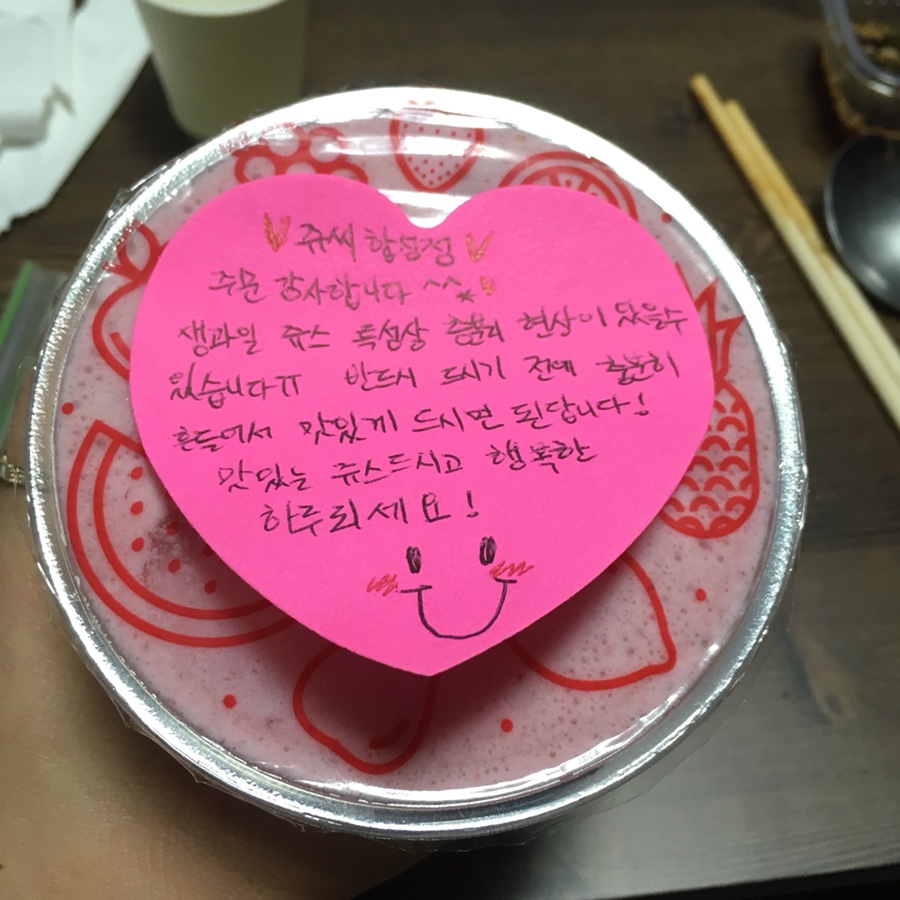 쥬씨 합성점
주문 감사합니다 ^^
생과일 쥬스 특성상 층분리 현상이 있을수
있습니다ㅠ 반드시 드시기 전에 충분히
흔들어서 맛있게 드시면 된답니다!
맛있는 쥬스드시고 행복한
하루되세요!